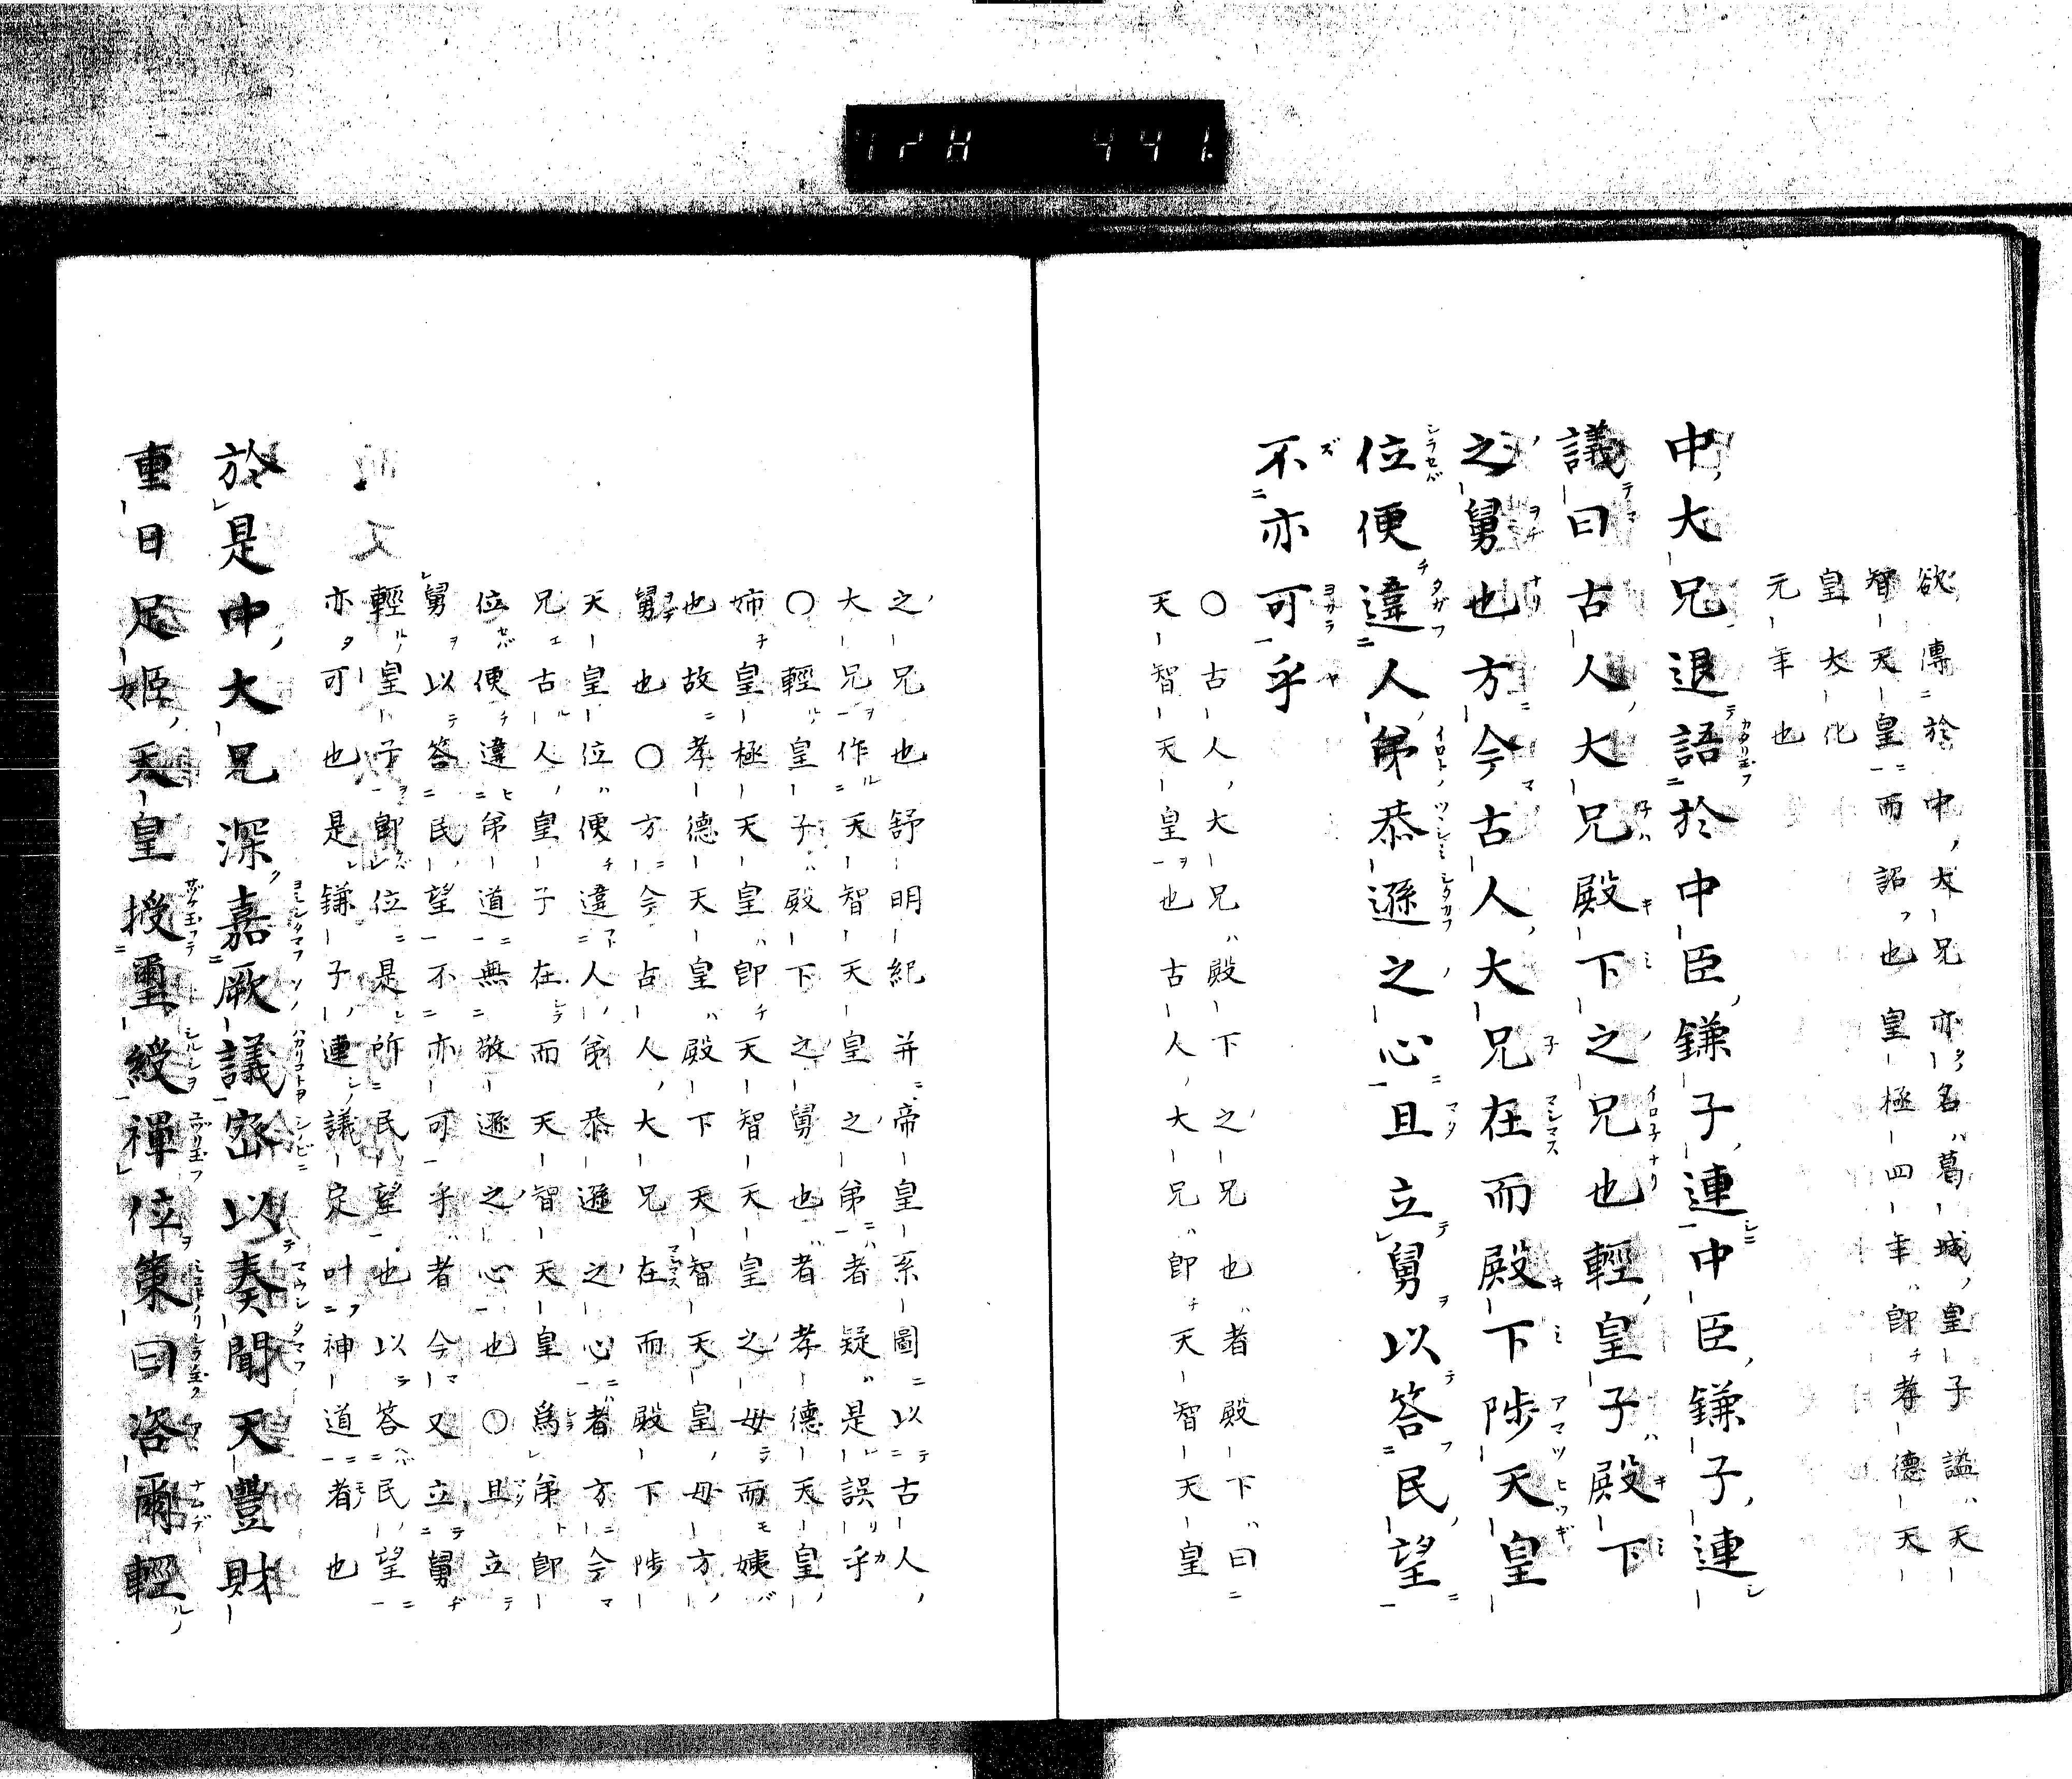 欲傳於中大兄亦名葛城皇子謚天
智天皇而詔也皇極四年即孝德天
皇大化
元年也
中大兄退語於中臣鎌子連中臣鎌子連
議曰古人大兄殿下之兄也輕皇子殿下
之舅也方今古人大兄在而殿下陟天皇
位便違人弟恭遜之心且立舅以答民望
不亦可乎
○古人大兄殿下之兄也者殿下曰
天智天皇也古人大兄即天智天皇
之兄也舒明紀并帝皇系圖以古人
大兄作天智天皇之弟者疑是誤乎
○輕皇子殿下之舅也者孝德天皇
姉皇極天皇即天智天皇之母而姨
也故孝德天皇殿下天智天皇母方
舅也○方今古人大兄在而殿下陟
天皇位便違人弟恭遜之心者方今
兄古人皇子在而天智天皇爲弟即
位便違弟道無敬遜之心也○且立
舅以答民望不亦可乎者今又立舅
輕皇子即位是所民望也以答民望
亦可也是鎌子連議定叶神道者也
於是中大兄深嘉厥議密以奏聞天豐財
重日足姬天皇授璽綬禪位策曰咨爾輕